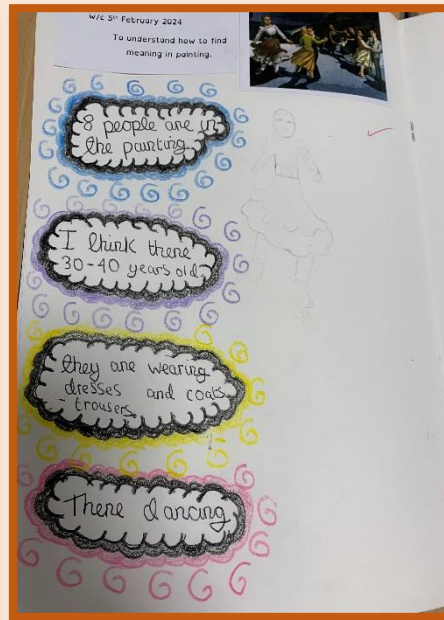 w/c 5th February 2024
To understand how to find
meaning in painting.
8 people are in
the painting
I think there
30-40 years old
they are wearing
dresses and coats
- trousers.
There dancing